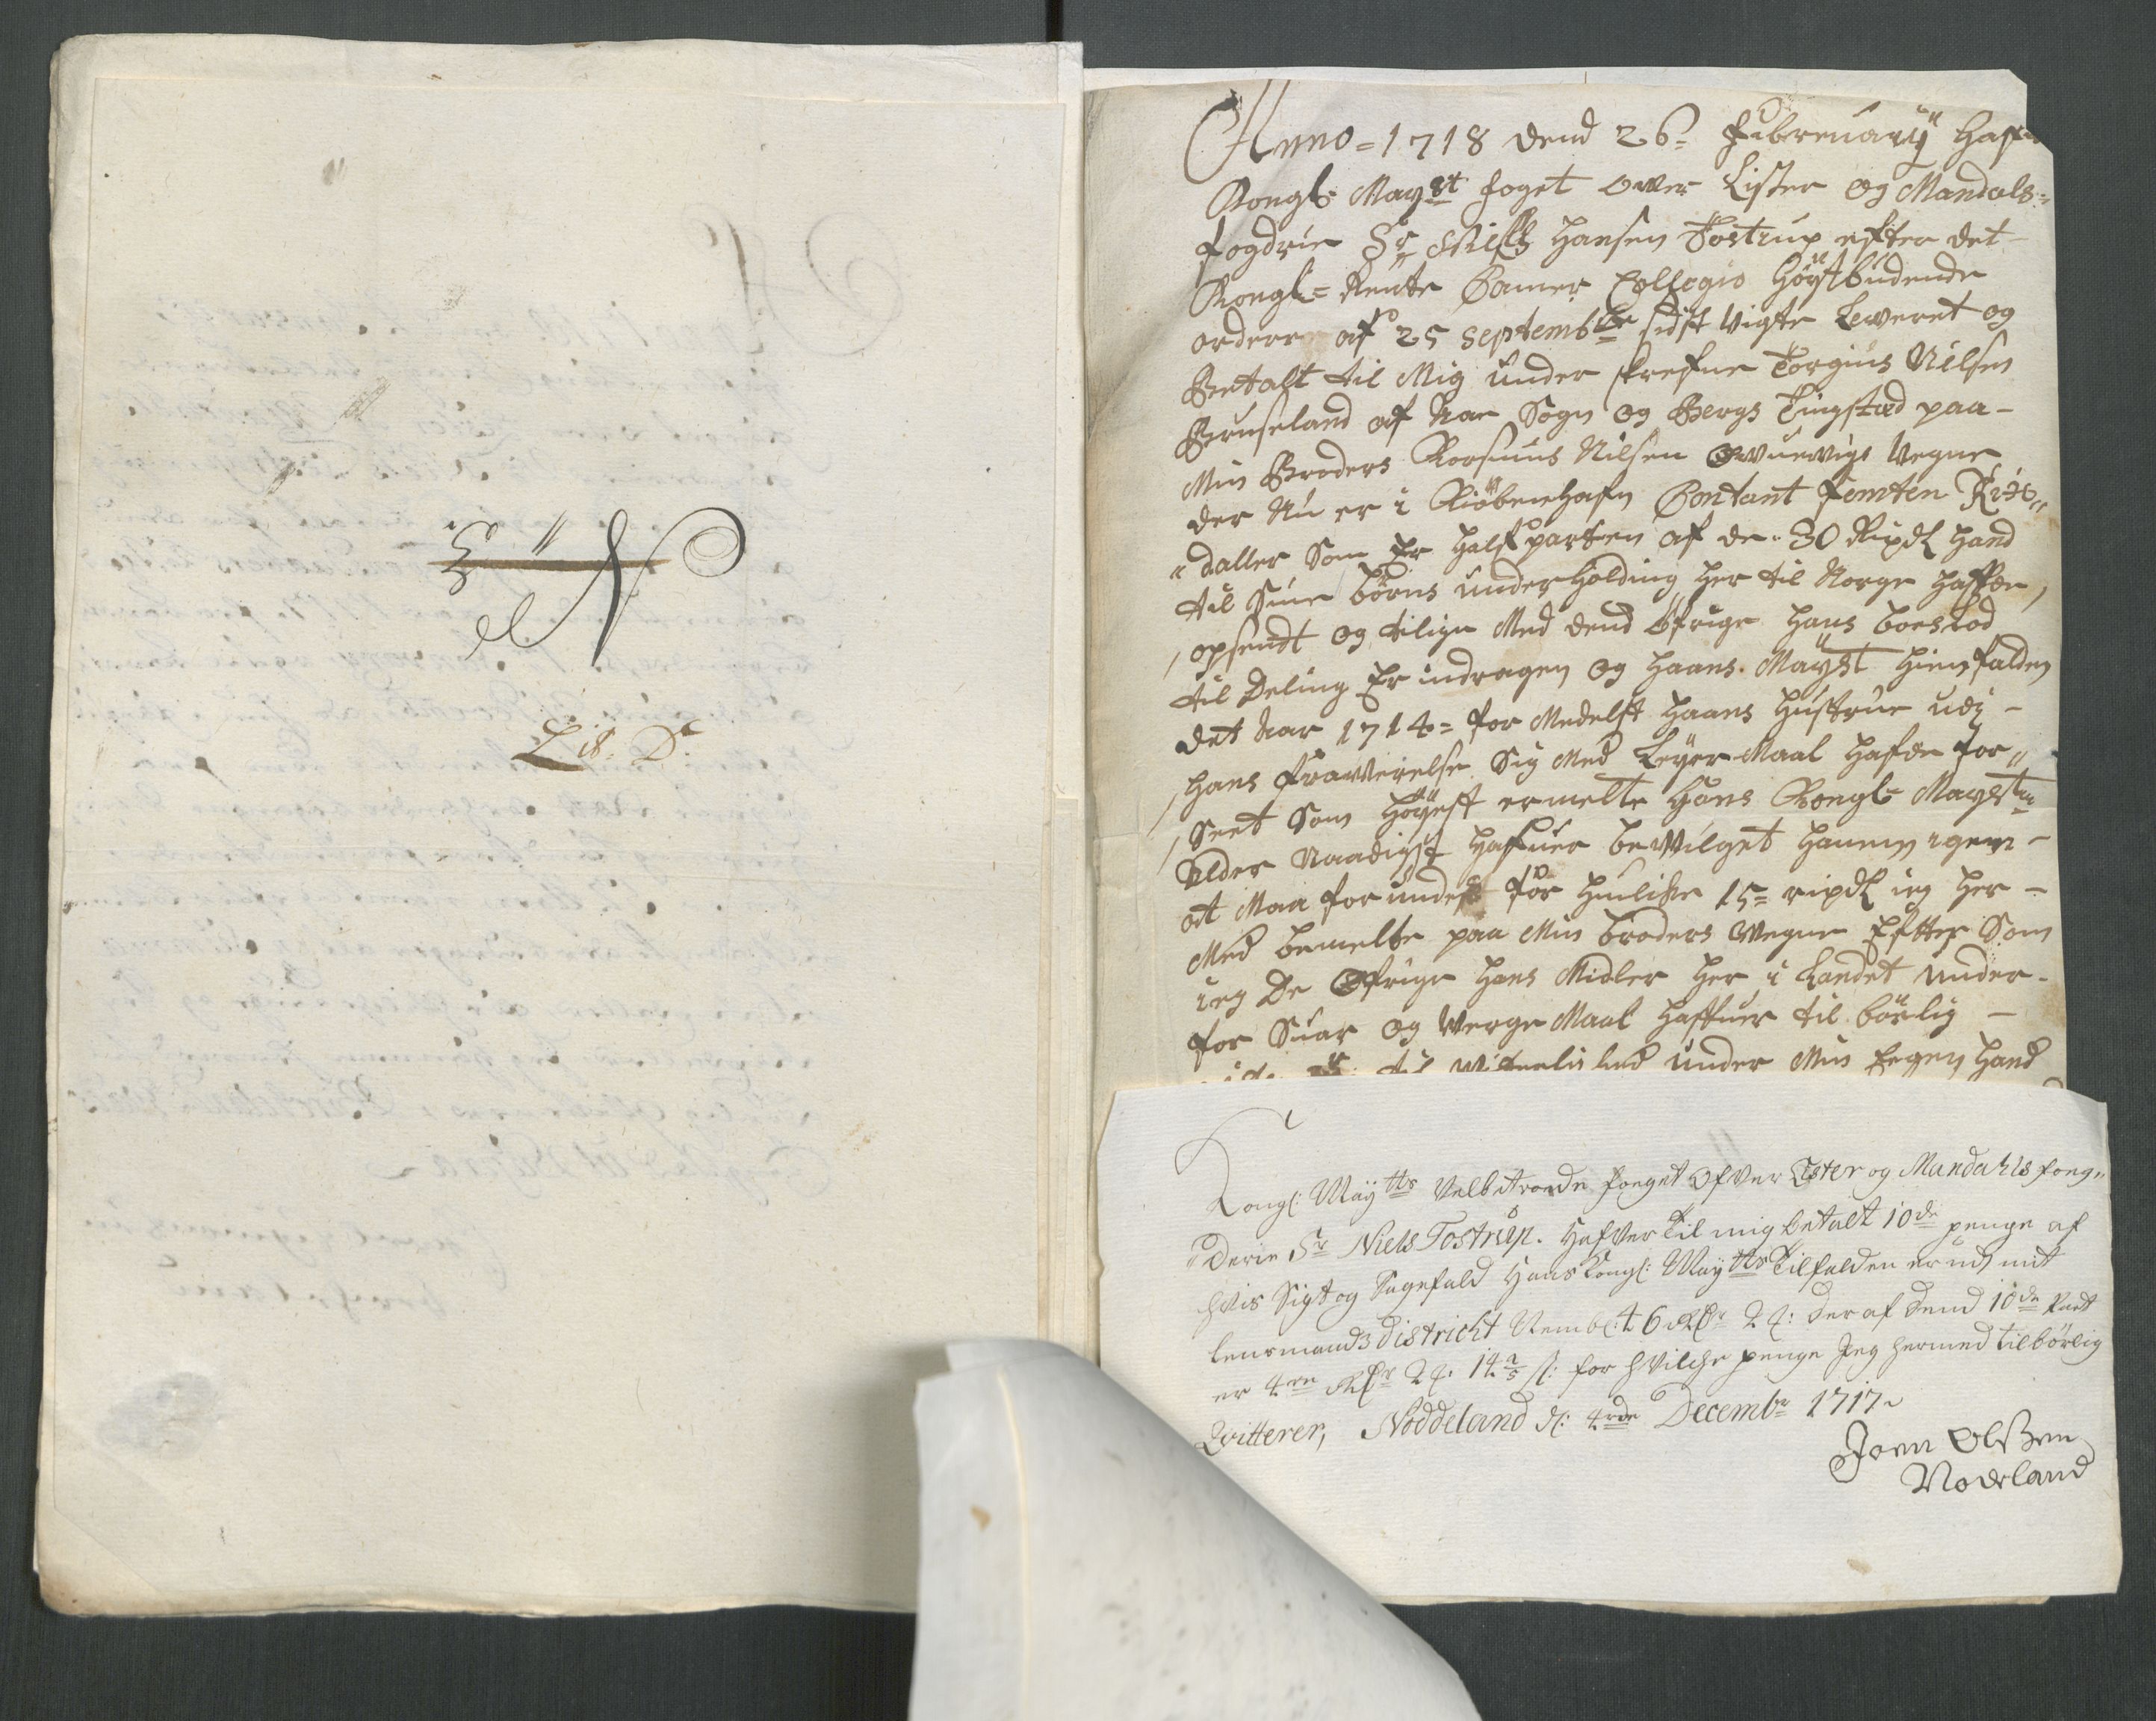 Lit: D:
Anno = 1718 dend 26= Februarij Hafr
Kongl: Mayst foget over Lister og Mandals=
fogdrie Sr Niels Hansen Tostrup efter det
Kongl= Rente Camer Collegio Höystbudende
ordere af 25 Septembr sidst Rigte Leweret og
Betalt til Mig under skrefne Torgius Nilsen
Bruseland af Sogn og Bergs Tingsted paa-
Min Broders Rasmus Nilsen Vegne
der Nu er i Kiöbenhafn Contant femten Rix"
"daller som Er Halfparten af de 30 Rixdl hand
til Sine börns underholding her til Norge Haffde
opsendt og tilige Med dend Öfrige hans boeslod
til Deling Er indragen og Haans Mayst hiemfalden
det Aar 1714= formedelst Haans Hustrue udi-
hans frawerelse Sig Med Leyermaal hafde for"
seet som Höyest ermelte Hans Kongl= Mayst
Alder Naadigst Hafuer bewilget hanem igen-
at Maa forundes for Huilke 15= rixdl ieg her-
Med bemelte paa Min broders Wegne Efter Som
ieg De Öfrige hans Midler her i Landet under-
for Suar og Werge Maal Haffuer til börlig-
til Witterlighed under Min Eegen Hand
Kongl: Maytts Velbetroede foeget Ofver Lister og Mandahls foug"
"Derie Sr Niels Tostrup. Hafver til mig betalt 10de penge af
hvis Sigt og Sagefald Hans Kongl: Maytts Tilfalden er udi mit
lensmands District Nembl: 46 Rdr 2 : deraf Dend 10de Part
er 4re Rdr 2 : 14 2/5 s: for hvilche penge Jeg hermed tilbörlig
Qvitterer, Nöddeland d: 4rde Decembr 1717
Joen Olszen
Noddeland